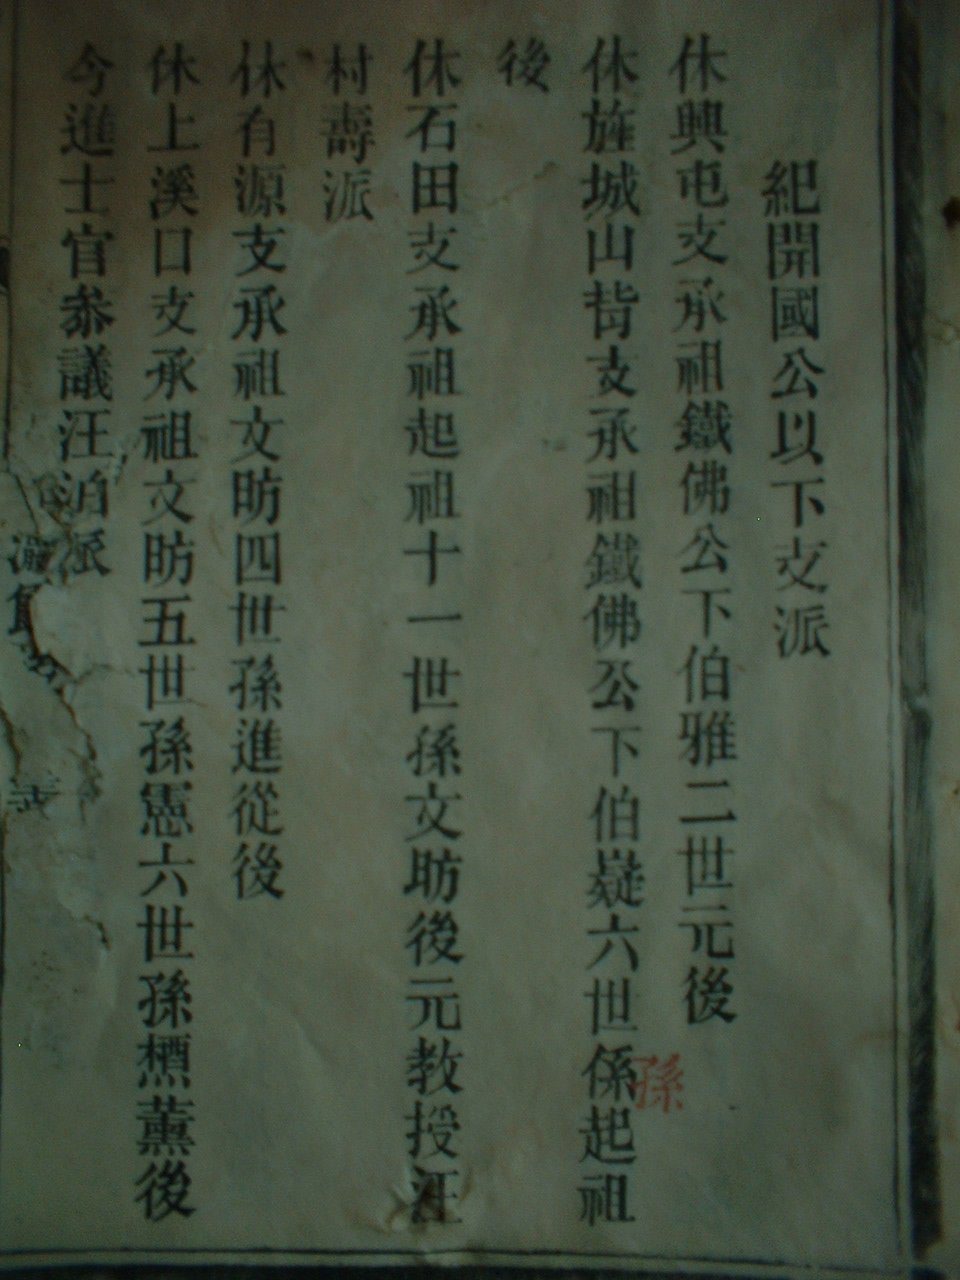 紀開國公以下支派
休興屯支承祖鐵佛公下伯雅二世元後
休旌城山背支承祖鐵佛公下伯嶷六世係起祖
孫
後
休石田支承祖起祖十一世孫文昉後元教授汪
村壽派
休有源支承祖文昉四世孫進從後
休上溪口支承祖文昉五世孫憲六世孫槱薰後
今進士官叅議汪泊派